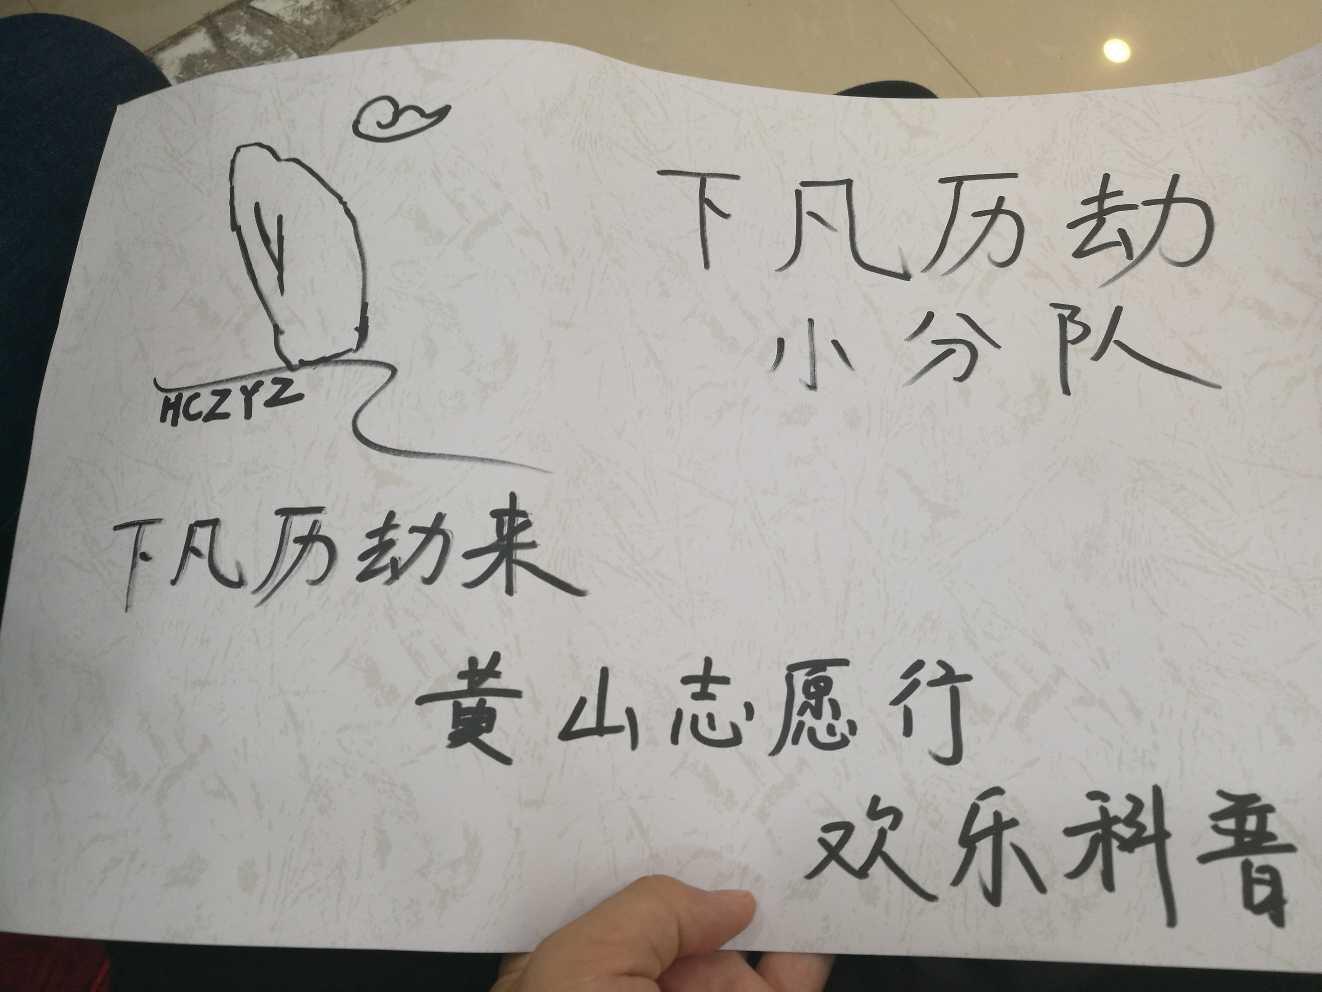 下凡历劫
小分队
HCZYZ
下凡历劫来
黄山志愿行
欢乐科普